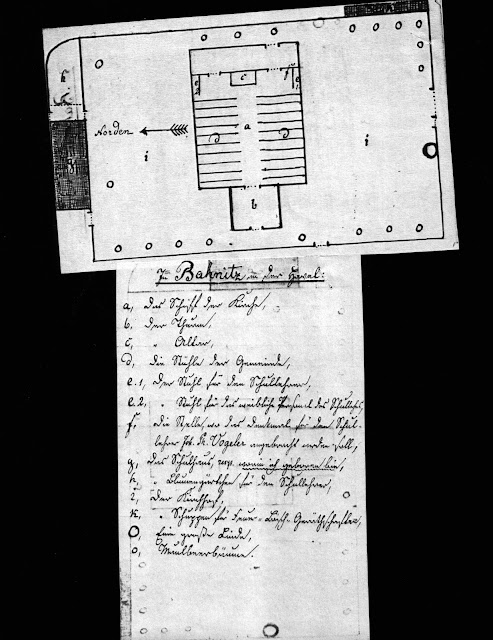 k
h
e1
c
f
e2
a
Norden
d
d
g
i
i
b
Zu Bahnitz an der Havel:
a, das Schiff der Kirche,
b, der Thurm,
c, " Altar,
d, die Stühle der Gemeinde,
e.1, der Stuhl für den Schullehrer,
e.2, " Stuhl für das weibliche Personal des Schullehrers,
f, die Stelle, wo das Denkmal für den Schul-
lehrer Joh. Vogeler angebracht werden soll,
g, das Schulhaus, worin ich geboren bin,
h, " Blumengarten für den Schullehrer,
i, der Kirchhof,
k, " Schuppen für Feuer-Lösch-Geräthschaften,
O, Eine große Linde,
o, Maulbeerbäume.